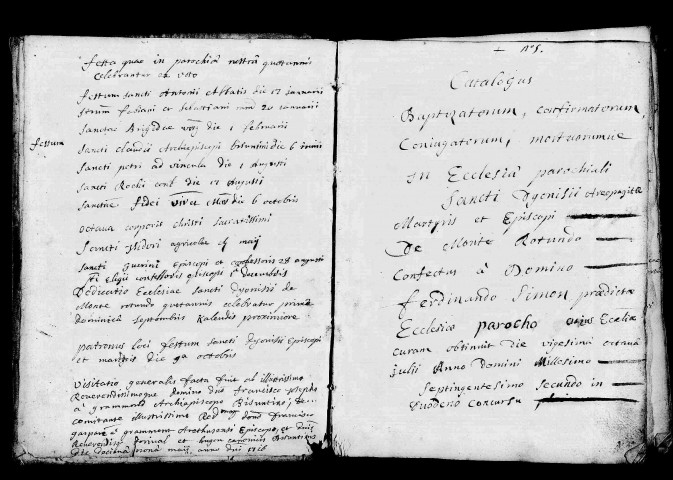 festa quae in parochiâ nostrâ quotannis
celebrantur ex voto
festum sancti Antonii Abbatis die 17 januarii
fabiani et sebastiani 20 januarii
sanctae Brigidae die 1 februarii
festum
sancti claudii Archiepiscopi Bisuntini die 6 junii
sancti petri ad vincula die 1 Augusti
sancti Rochi conf. die 17 Augusti
sanctae fidei die 6 octobris
octava corporis christi sacratissimi
sancti Isidori agricolae maij
sancti Guerini Episcopi et confessoris 28 augusti
sti Eligii confessoris episcopi 1a decembris
Dedicatio Ecclesiae sancti Dyonisii de
Monte rotundo quotannis celebratur primâ
Dominicâ septembris Kalendis proximiore
patronus loci festum sancti Dyonisii Episcopi
et martiris die 9a octobris
visitatio generalis facta fuit ab illustrissimo
Reverendissimoque Domino Dno francisco josepho
à grammont Archiepiscopo Bisuntino
comitante illustrissimo Dono francisco
gaspare à grammont Arethusensi Episcopo, et
et canonicis Bisuntinis
die maij, anno dni
n° 5.
Catalogus
Baptizatorum, confirmatorum,
Conjugatorum, mortuorumve
In Ecclesiâ parochiali
Sancti Dyonisii Areopagitæ
Martyris et Episcopi
De Monte Rotundo
Confectus à Domino
Ferdinando Simon prædictæ
Ecclesiæ parocho cujus Ecclesiæ
curam obtinuit die vigesimâ octavâ
julii Anno Domini Millesimo
septingentesimo secundo in
duodeno concursu